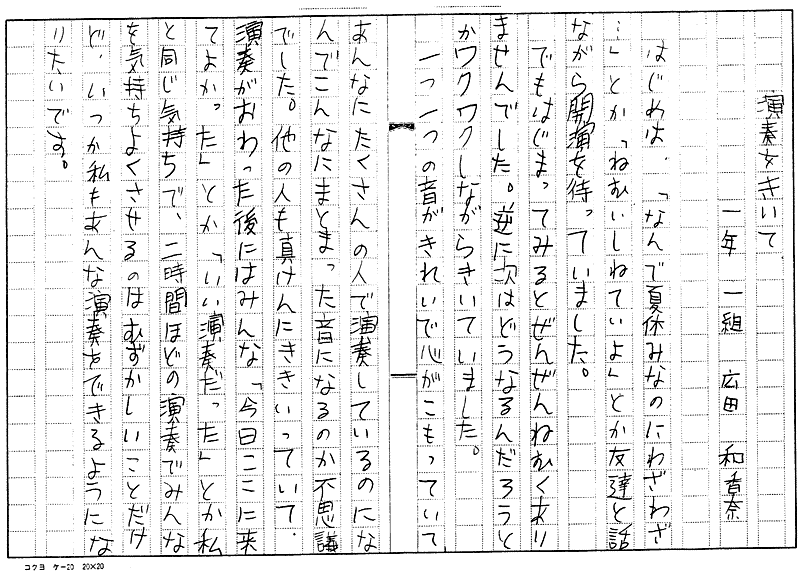 演奏をきいて
一年 一組 広田 和香奈
はじめは、「なんで夏休みなのにわざわざ
…」とか「ねむいしねていよ」とか友達と話
ながら開演を待っていました。
でもはじまってみるとぜんぜんねむくあり
ませんでした。逆に次はどうなるんだろうと
かワクワクしながらきいていました。
一つ一つの音がきれいで心がこもっていて
あんなにたくさんの人で演奏しているのにな
んでこんなにまとまった音になるのか不思議
でした。他の人も真けんにききいっていて、
演奏がおわった後にはみんな「今日ここに来
てよかった」とか「いい演奏だった」とか私
と同じ気持ちで、二時間ほどの演奏でみんな
を気持ちよくさせるのはむずかしいことだけ
ど、いつか私もあんな演奏をできるようにな
りたいです。
コクヨ ケー20 20×20